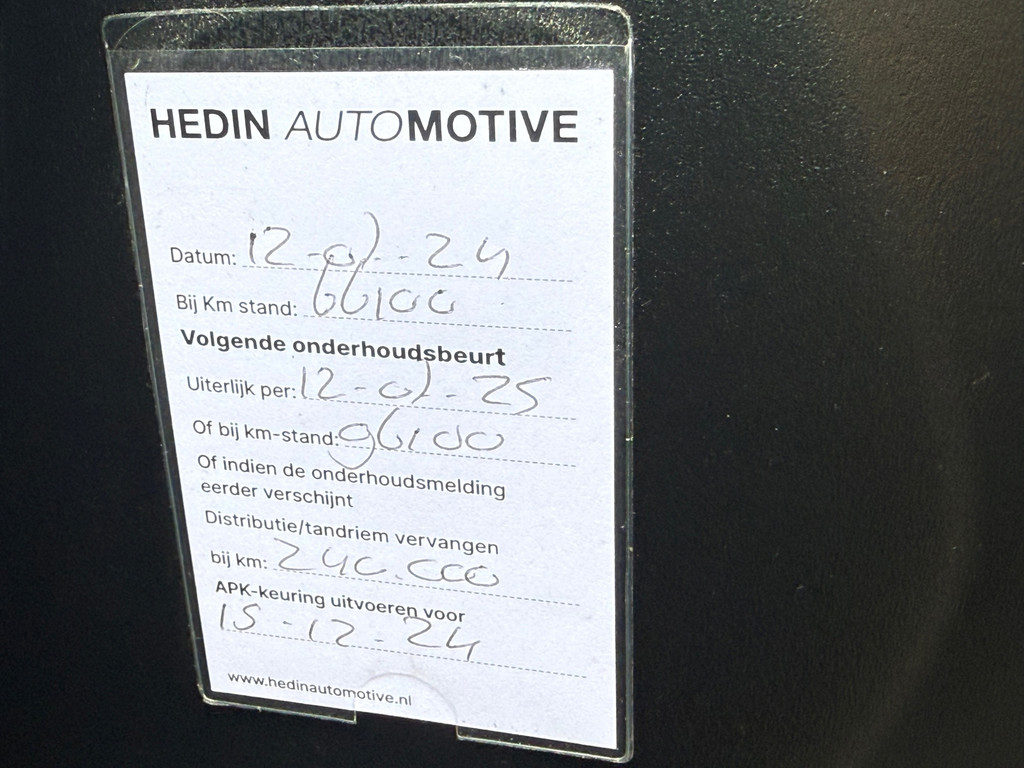 HEDIN AUTOMOTIVE
Datum: 12-01-24
Bij Km stand: 66100
Volgende onderhoudsbeurt
Uiterlijk per: 12-01-25
Of bij km-stand: 96100
Of indien de onderhoudsmelding
eerder verschijnt
Distributie/tandriem vervangen
bij km: 240.000
APK-keuring uitvoeren voor
15-12-24
www.hedinautomotive.nl